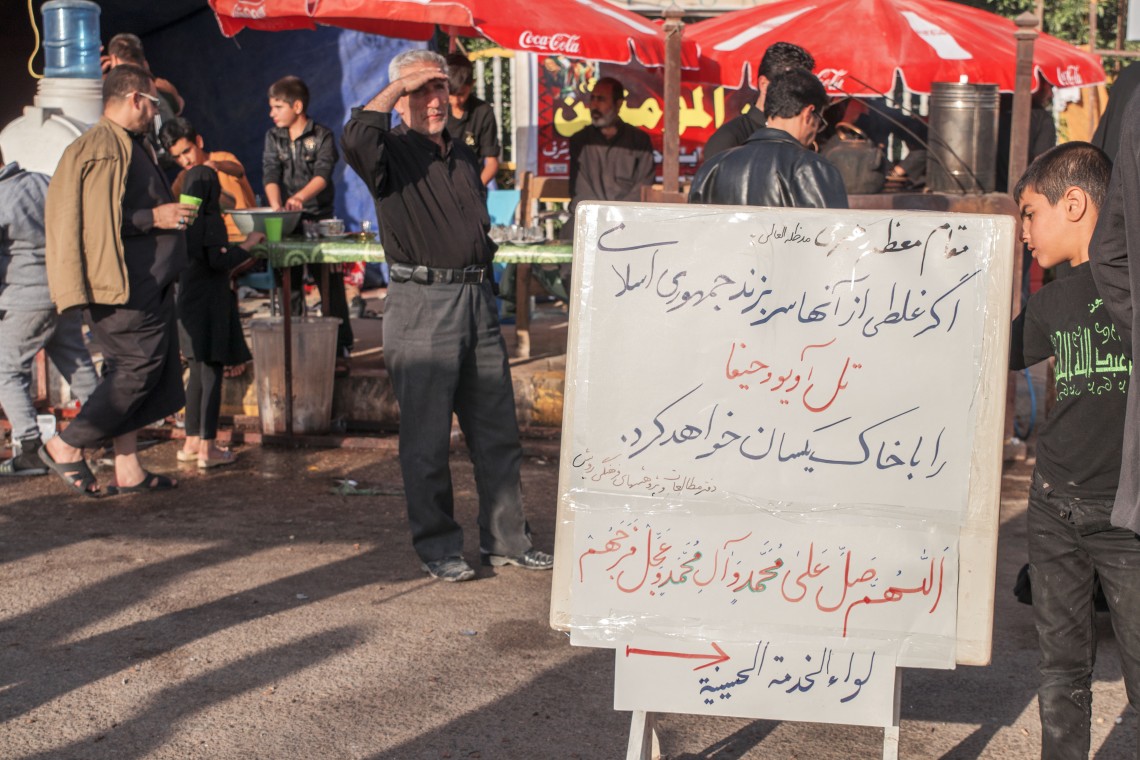 Coca-Cola
Coca-Cola
المؤمنين
مقام معظم رهبری مدظله العالی
اگر غلطی از آنها سر بزند جمهوری اسلامی
تل آویو و حیفا
را با خاک یکسان خواهد کرد.
دفتر مطالعات و پژوهشهای فرهنگی
اَللّهُمَّ صَلِّ عَلیٰ مُحَمَّدٍ وَآلِ مُحَمَّدٍ وَعَجِّل فَرَجَهُم
لواء الخدمة الحسينية
عبد الله